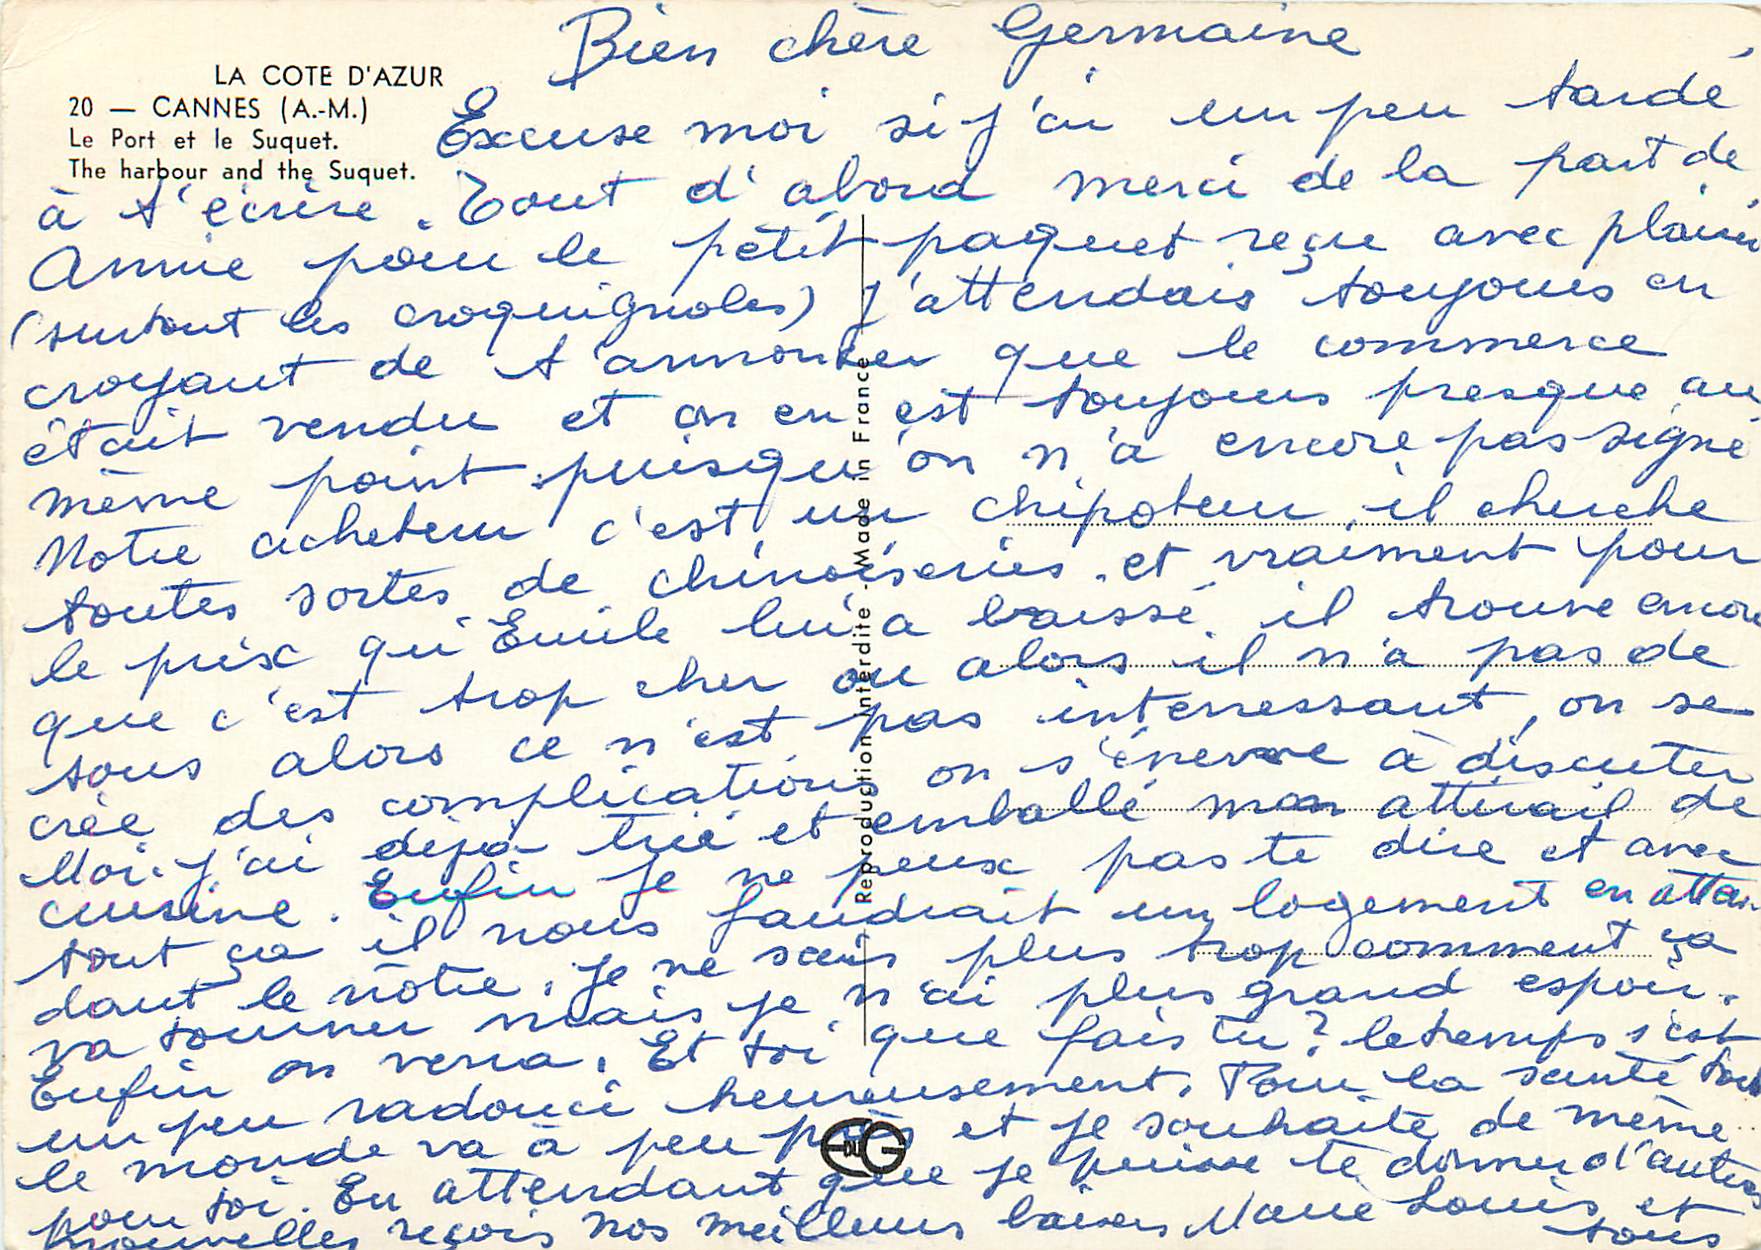 LA COTE D'AZUR
20 — CANNES (A.-M.)
Le Port et le Suquet.
The harbour and the Suquet.
Bien chère Germaine,
Excuse moi si j'ai un peu tardé
à t'écrire. Tout d'abord merci de la part de
Annie pour le petit paquet reçu avec plaisir
(surtout les croquignoles) J'attendais toujours en
croyant de t'annoncer que le commerce
était vendu et on en est toujours presque au
même point puisqu'on n'a encore pas signé
Notre acheteur c'est un chipoteur, il cherche
toutes sortes de chinoiseries. et vraiment pour
le prix qu'Emile lui a baissé il trouve encore
que c'est trop cher ou alors il n'a pas de
sous alors ce n'est pas interressant, on se
crée des complications on s'énerve à discuter
Moi. j'ai déjà trié et emballé mon attirail de
cuisine. Enfin je ne peux pas te dire et avec
tout ça il nous faudrait un logement en atten-
dant le nôtre. Je ne sais plus trop comment ça
va tourner mais je n'ai plus grand espoir.
Enfin on verra. Et toi que fais tu? le temps s'est
un peu radouci heureusement. Pour la santé tout
le monde va à peu près et je souhaite de même
pour toi. En attendant que je puisse te donner d'autres
nouvelles reçois nos meilleurs baisers Marie Louis et
tous
Reproduction Interdite - Made in France
EDUG